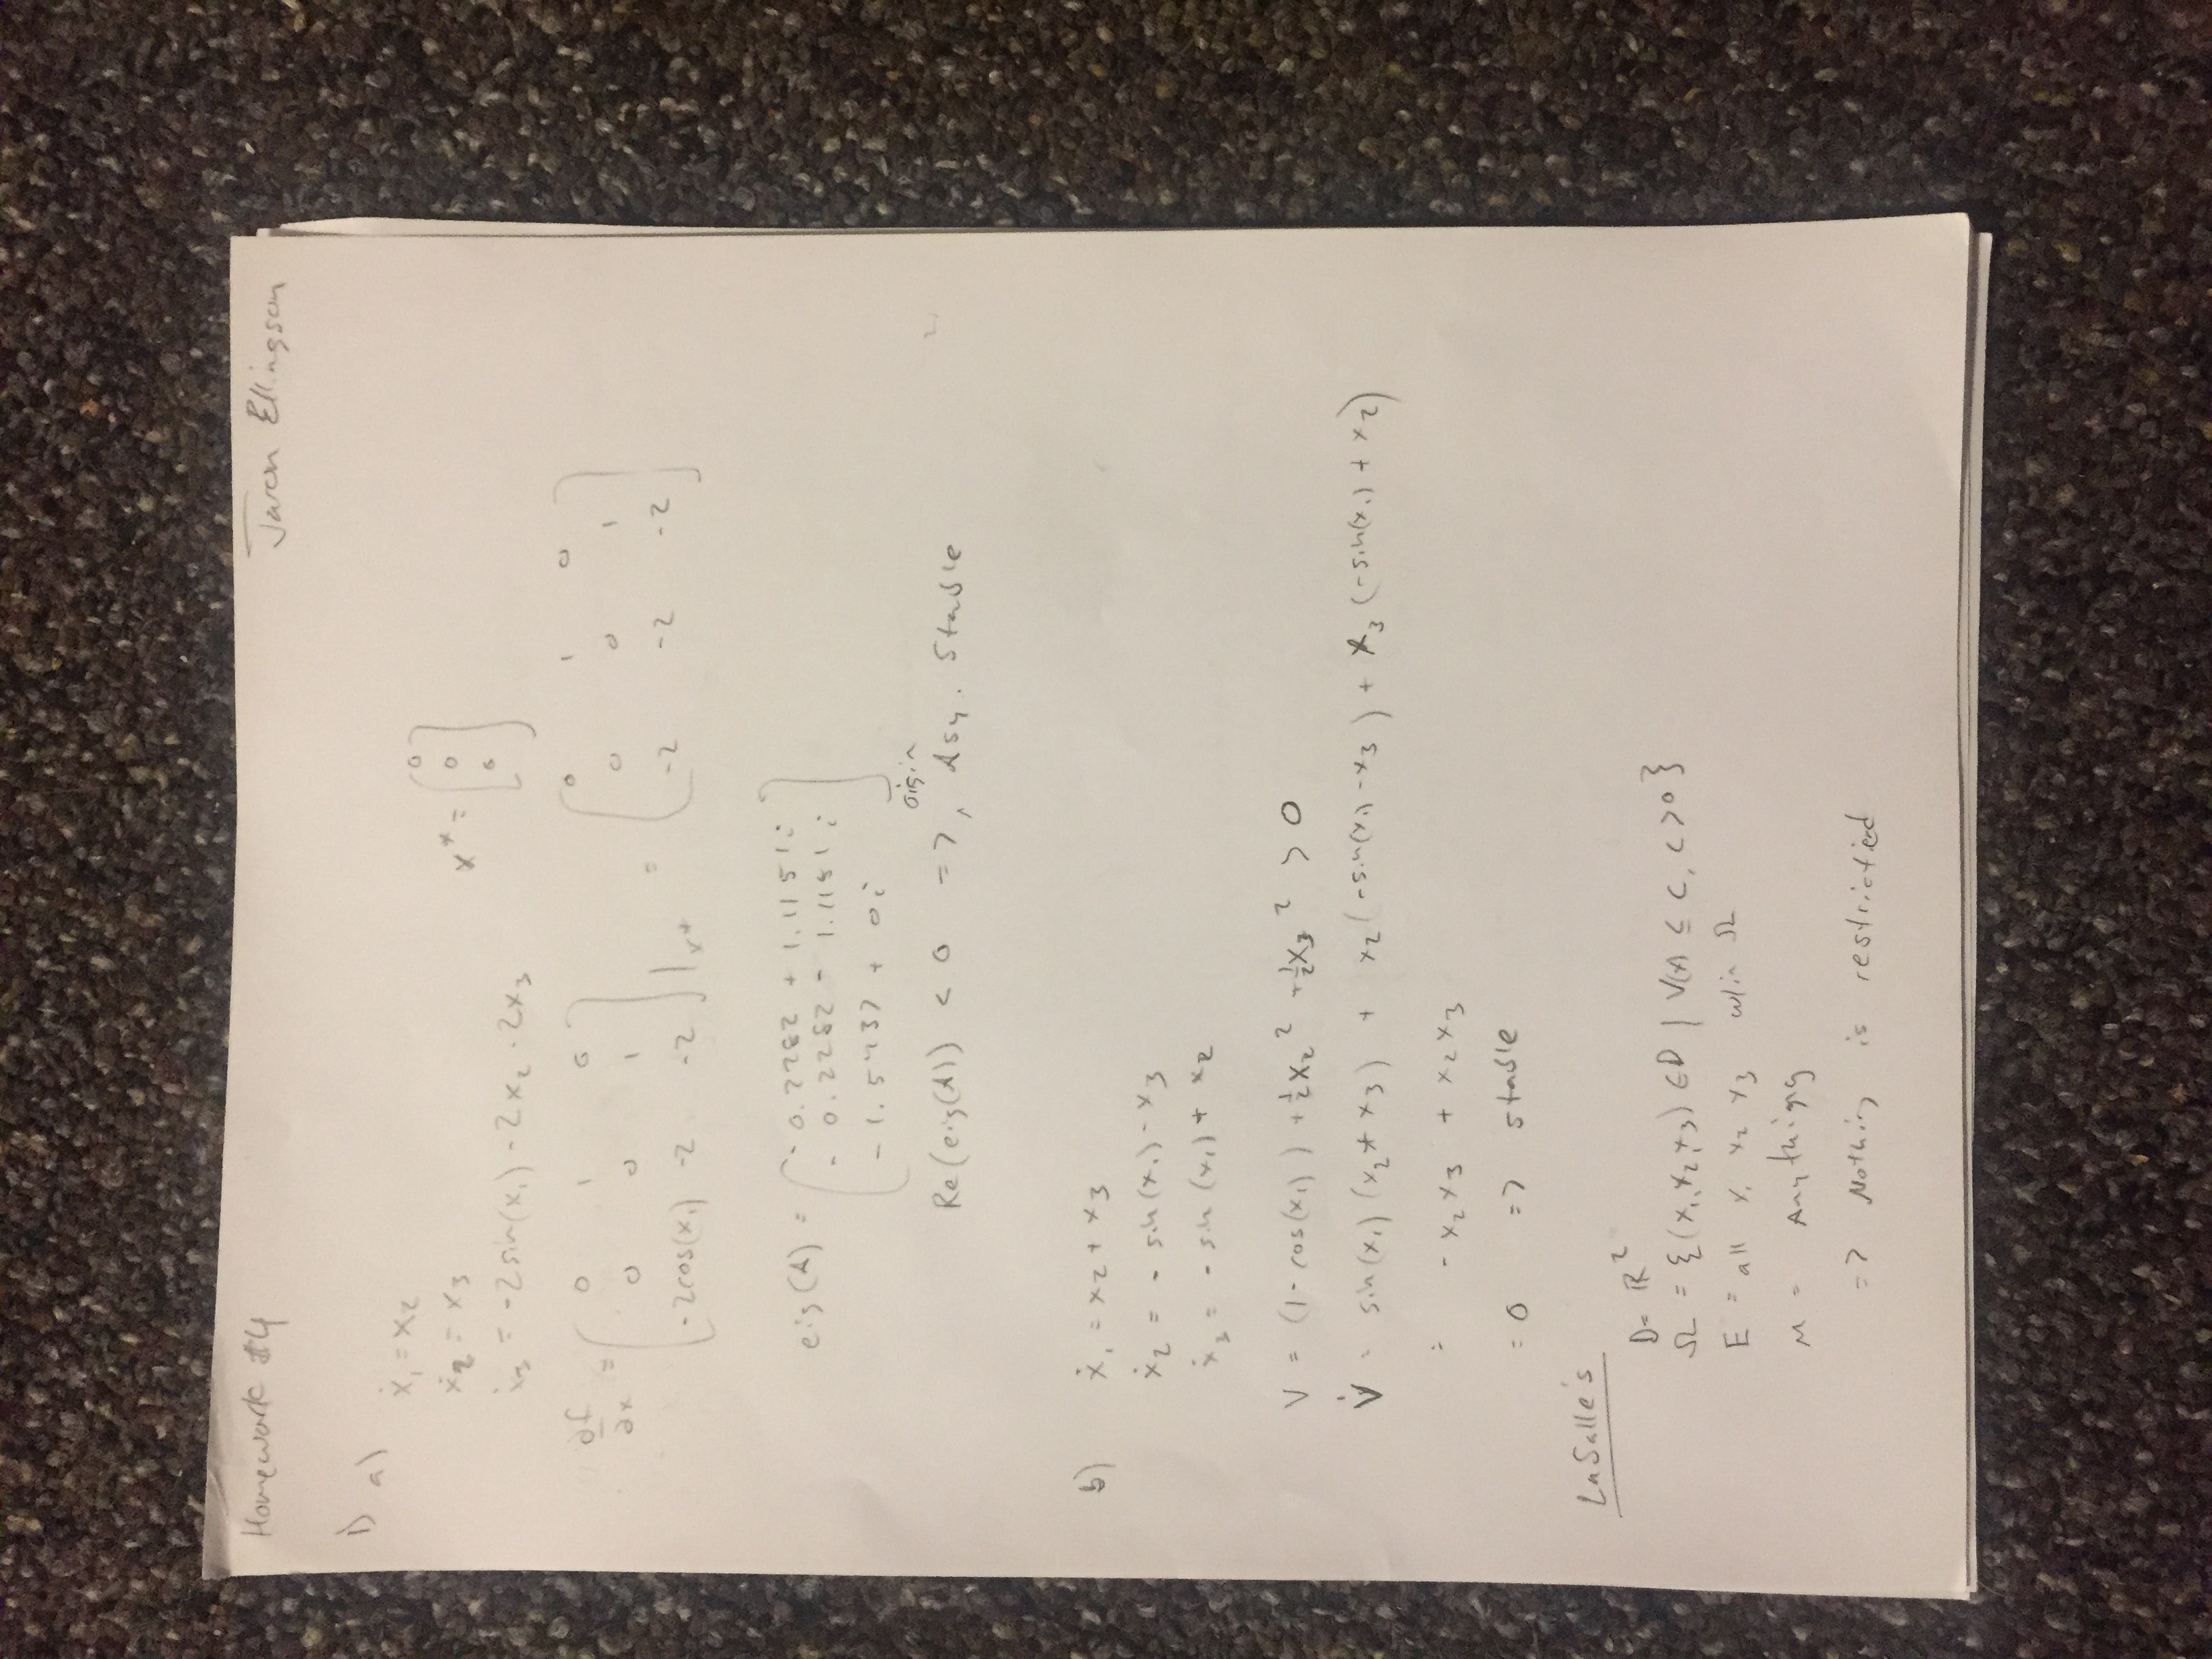 Homework #4
Jaron Ellingson
1) a)
ẋ₁ = x₂
ẋ₂ = x₃
ẋ₃ = -2sin(x₁) - 2x₂ - 2x₃
x* = [0 0 0]
∂f/∂x = [0 1 0
0 0 1
-2cos(x₁) -2 -2] |x*
= [0 1 0
0 0 1
-2 -2 -2]
eig(A) = [-0.2282 + 1.1151i
-0.2282 - 1.1151i
-1.5437 + 0i]
Re(eig(A)) < 0 => origin Asy. Stable
b) ẋ₁ = x₂ + x₃
ẋ₂ = - sin(x₁) - x₃
ẋ₃ = - sin(x₁) + x₂
V = (1 - cos(x₁)) + ½x₂² + ½x₃² > 0
V̇ = sin(x₁)(x₂ + x₃) + x₂(-sin(x₁) - x₃) + x₃(-sin(x₁) + x₂)
= - x₂x₃ + x₂x₃
= 0 => stable
LaSalle's
D = ℝ²
Ω = {(x₁,x₂,x₃) ∈ D | V(x) ≤ c, c > 0}
E = all x₁ x₂ x₃ w/in Ω
M = Anything
=> Nothing is restrictied